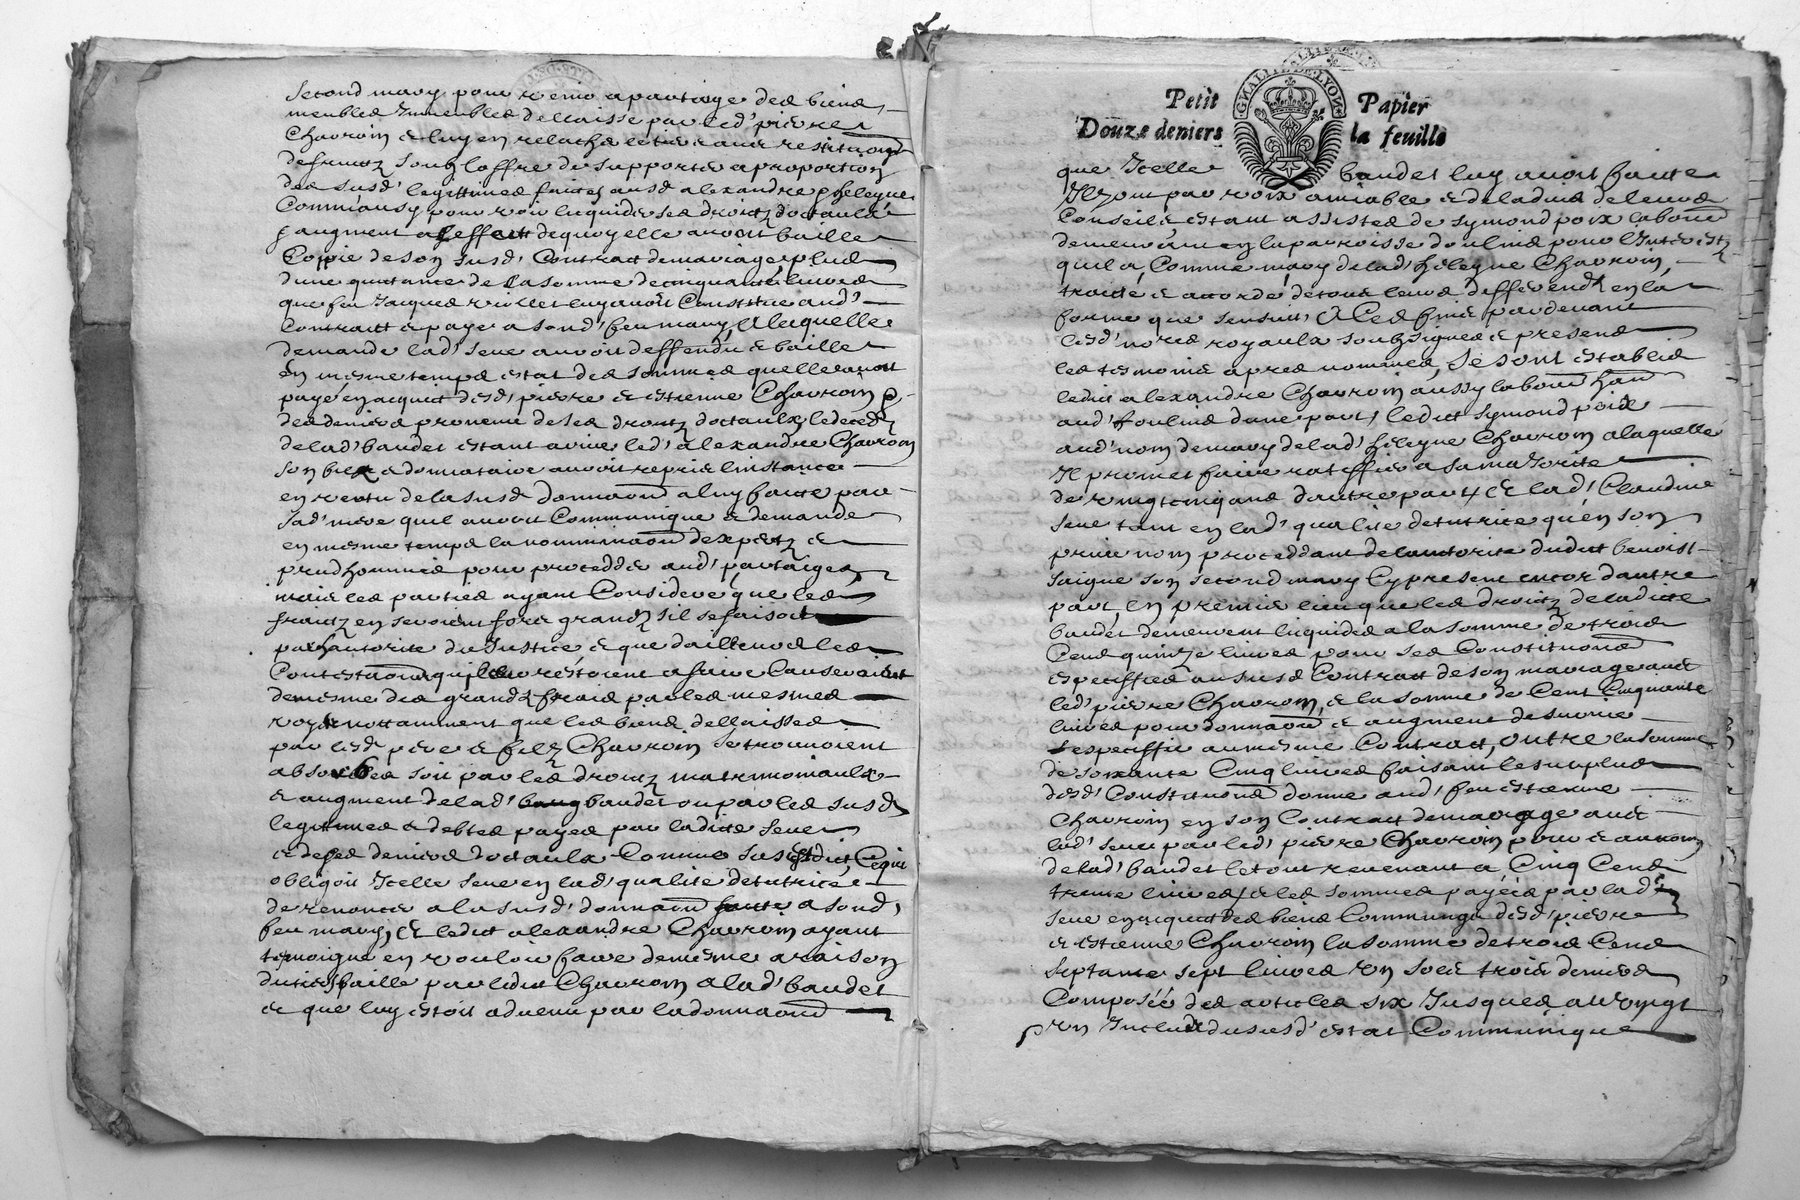 second mary pour venir a partaige des biens
meubles Immeubles dellaisse par led' pierre
Chavroin & luy en relacher le tiers avec restitu(ti)on
de fruictz soubz loffre de supporter a proportion
des susd' legittimes faites ausd alexandre & heleyne
Comm' aussy pour voir liquider ses droictz doctaulx
& augment a leffect dequoy elle avoit baille
Coppie de son susd' Contract de mariage plus
dune quictance de la somme de cinquante livres
que feu Jacques viollet luy avoit Constitue aud'
Contract & paye a sond' feu mary, A laquelle
demande lad' seve auroit deffendu & baille
en mesme temps estat des sommes quelle avoit
payé en acquict desd' pierre & estienne Chavroin &
des deniers provenu de ses droictz doctaulx, le deces
de lad' baudet estant arrive led' alexandre Chavroin
son filz & donnataire auroit repris linstance
en vertu de la susd donna(ti)on a luy faite par
sad' mere quil auroit Communique & demande
en mesme temps la nomina(ti)on dexpertz &
prudhommes pour procedder aud' partaiges
mais les parties ayant Considere que les
fraictz en seroient fort grandz sil se faisoit
par hautorite de Justice & que dailleurs les
Contesta(ti)ons qui leur restoient a faire Causeroient
de mesme des grandz frais par les mesmes
voyes nottamment que les biens dellaisses
par lesd pere & filz Chavroin se trouvoient
absorbes soit par les droictz matrimoniaulx
& augment de lad' baudet ou par les susd
legitimes & debtes payes par ladicte seve
& de ses deniers doctaulx Comme sus est dict Ce qui
obligoit Icelle seve en lad' qualite de tutrice
de renoncer a la susd' donna(ti)on faicte a sond'
feu mary, Et ledict alexandre Chavroin ayant
temoigne en vouloir faire de mesme a raison
du tiers baille par ledict Chavroin a lad' baudet
& que luy estoit advenu par la donna(ti)on
GNALITE DE LYON
Petit Papier
Douze deniers la feuille
que Icelle baudet luy avoit faicte
Ilz ont par voix amiable & de ladvis de leurs
Conseilz estant assistes de Symond poix laboureur
demeurant en la parroisse doulins pour linterestz
quil a, Comme mary de lad' heleyne Chavroin,
traicté & accorde de tous leurs differendz en la
forme que sensuit, A Ces fins pardevant
lesd' no(tai)res royaulx soubzsignes & presens
les tesmoins apres nommes, se sont establis
ledict alexandre Chavroin aussy laboureur hant
aud' foulins dune part, ledict Symond poix
aud' nom de mary de lad' heleyne Chavroin a laquelle
Il promet faire ratiffier a sa majorite
de vingt cinq ans dautre part & lad' Claudine
seve tant en lad' qualite de tutrice quen son
prive nom proceddant de lauctorite dudict benoist
saigne son second mary Cy present encor dautre
part, En premier lieu que les droictz de ladicte
baudet demeurent liquides a la somme de trois
Cens quinze livres pour ses Constitu(ti)ons
especiffies au susd Contract de son mariage avec
led' pierre Chavroin, & la somme de Cent Cinquante
livres pour donna(ti)on & augment de survie
especiffie au mesme Contract, outre la somme
de soixante Cinq livres faisant le surplus
desd' Constitu(ti)ons donne aud' feu estienne
Chavroin en son Contract de mariage avec
lad' seve par led' pierre Chavroin pour & au nom
de lad' baudet le tout revenant a Cinq Cens
trente livres, & les sommes payées par lad'
seve en acquict des biens Communs desd' pierre
& estienne Chavroin la somme de trois Cens
septante sept livres un solz trois deniers
Composée des articles six Jusques au vingt
un Includ du susd' estat Communique